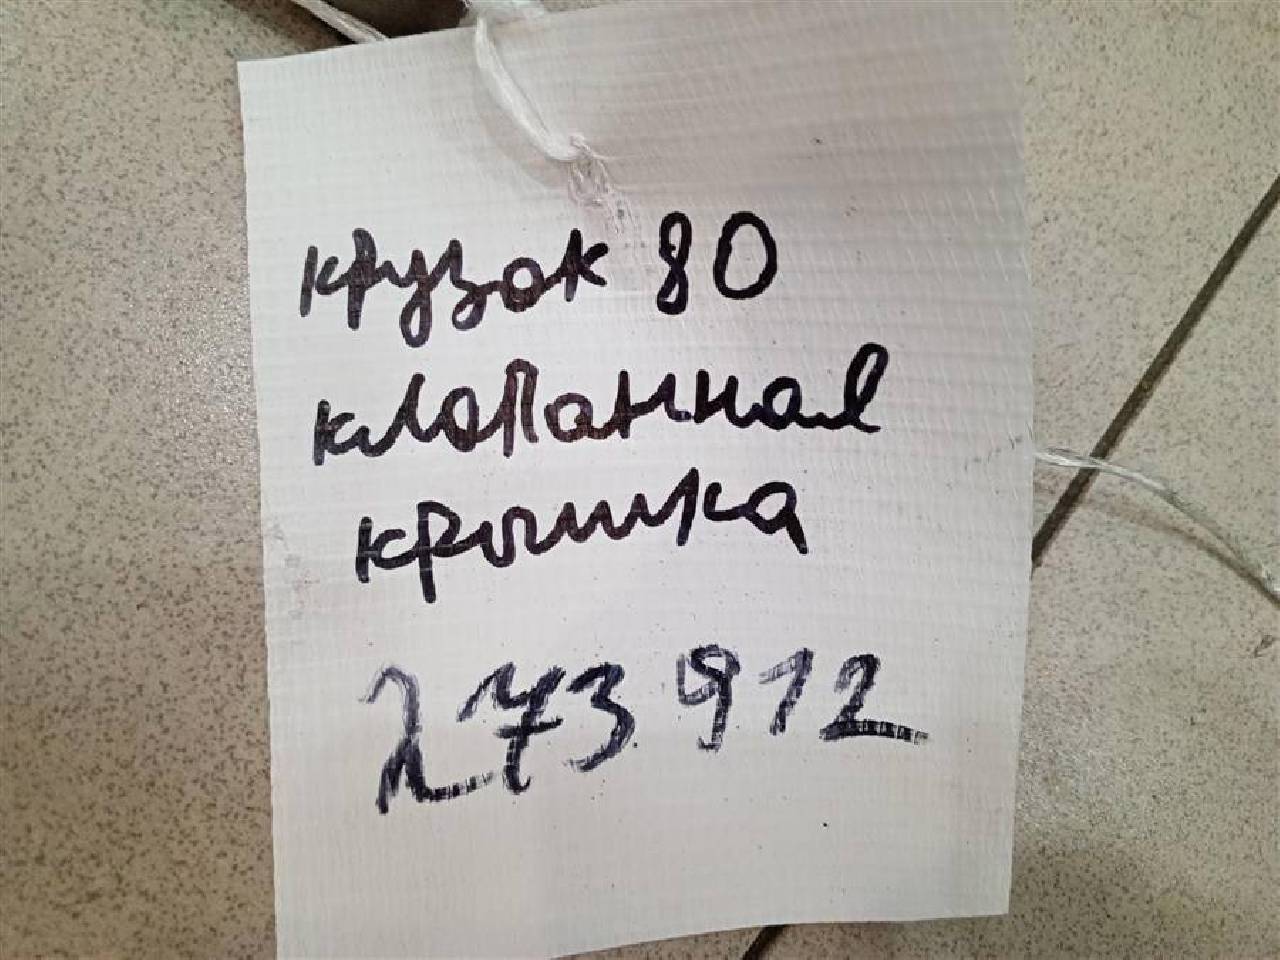 крузак 80
клапанная
крышка
273912